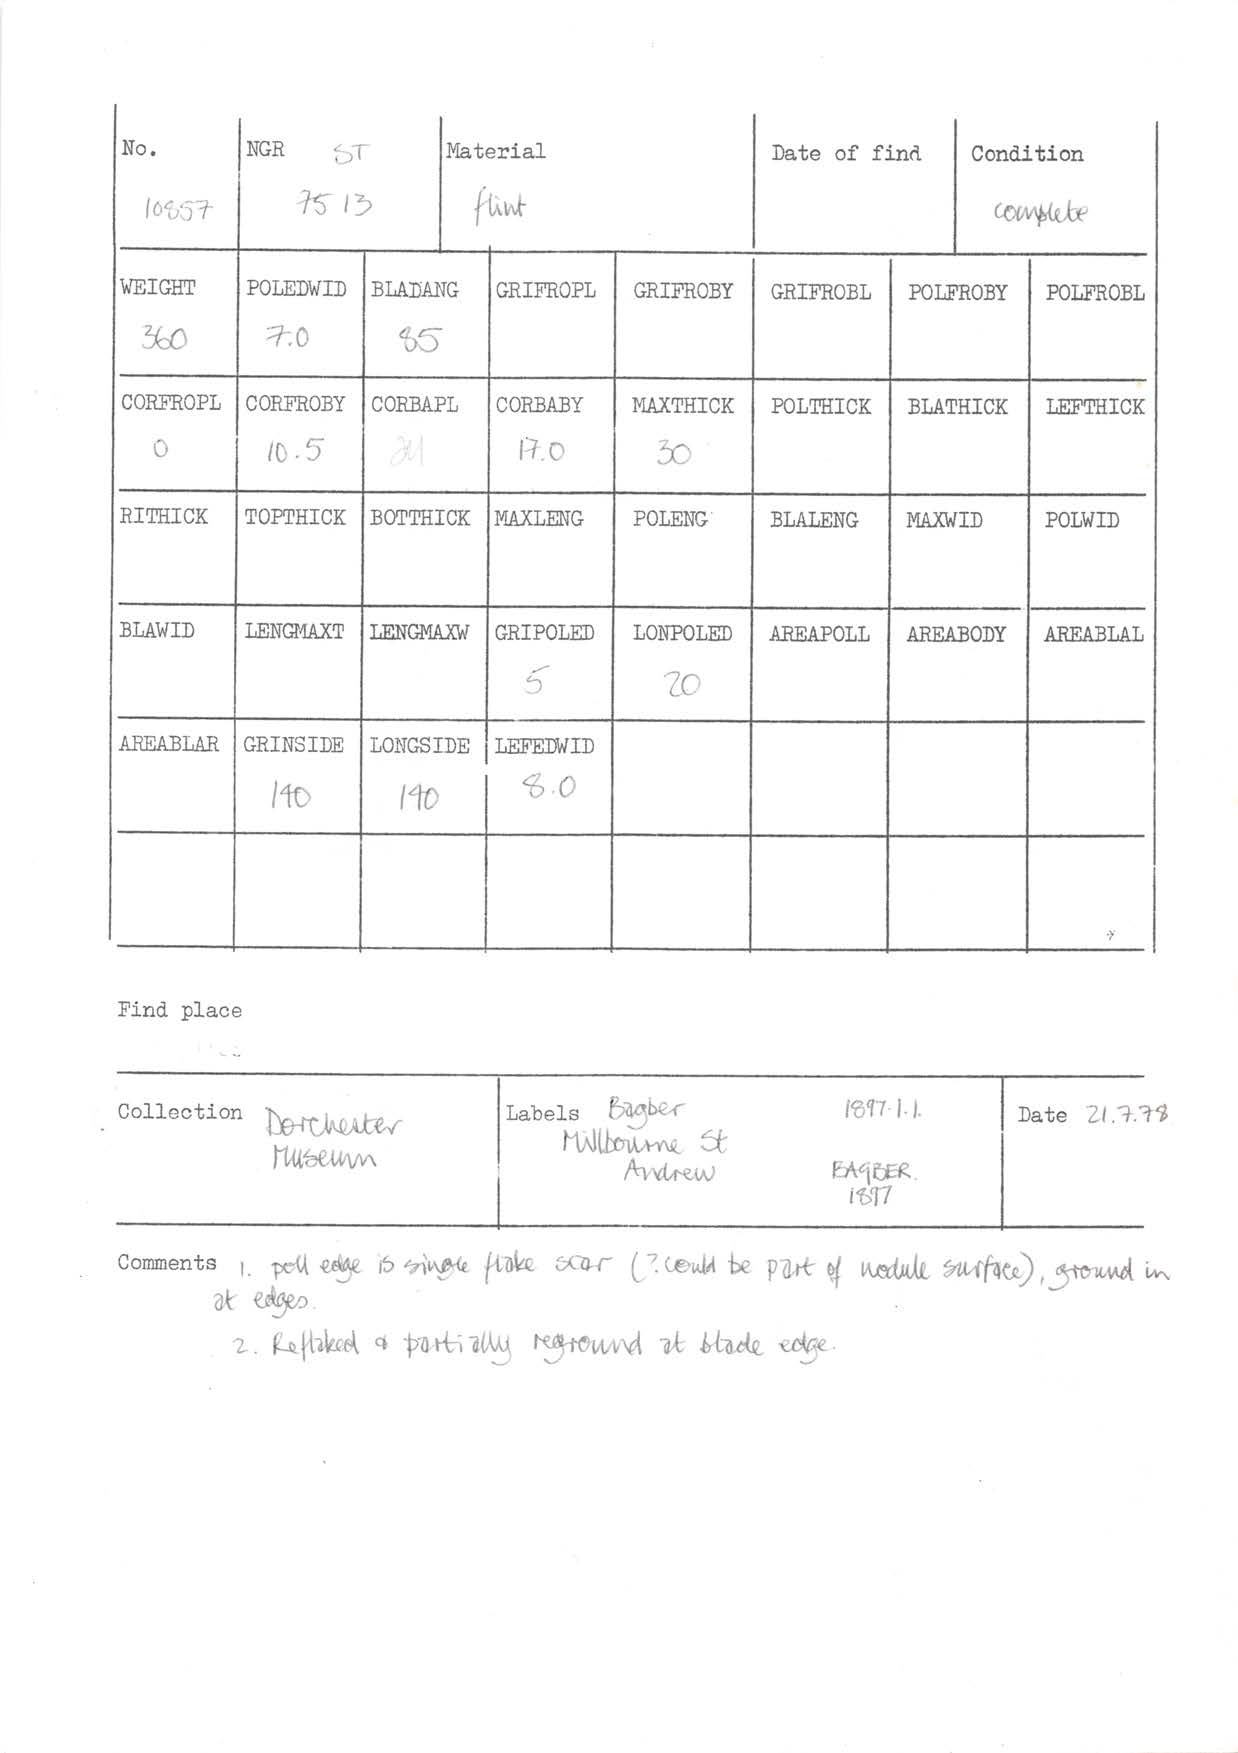 No. NGR ST Material Date of find Condition
10857 75 13 flint complete
WEIGHT POLEDWID BLADANG GRIFROPL GRIFROBY GRIFROBL POLFROBY POLFROBL
360 7.0 85
CORFROPL CORFROBY CORBAPL CORBABY MAXTHICK POLTHICK BLATHICK LEFTHICK
0 10.5 17.0 30
RITHICK TOPTHICK BOTTHICK MAXLENG POLENG BLALENG MAXWID POLWID
BLAWID LENGMAXT LENGMAXW GRIPOLED LONPOLED AREAPOLL AREABODY AREABLAL
5 20
AREABLAR GRINSIDE LONGSIDE LEFEDWID
140 140 8.0
Find place
Collection Dorchester
Museum
Labels Bagber 1897.1.1.
Millbourne St
Andrew BAGBER.
1897
Date 21.7.78
Comments 1. poll edge is single flake scar (?could be part of nodule surface), ground in
at edges.
2. Reflaked & partially reground at blade edge.